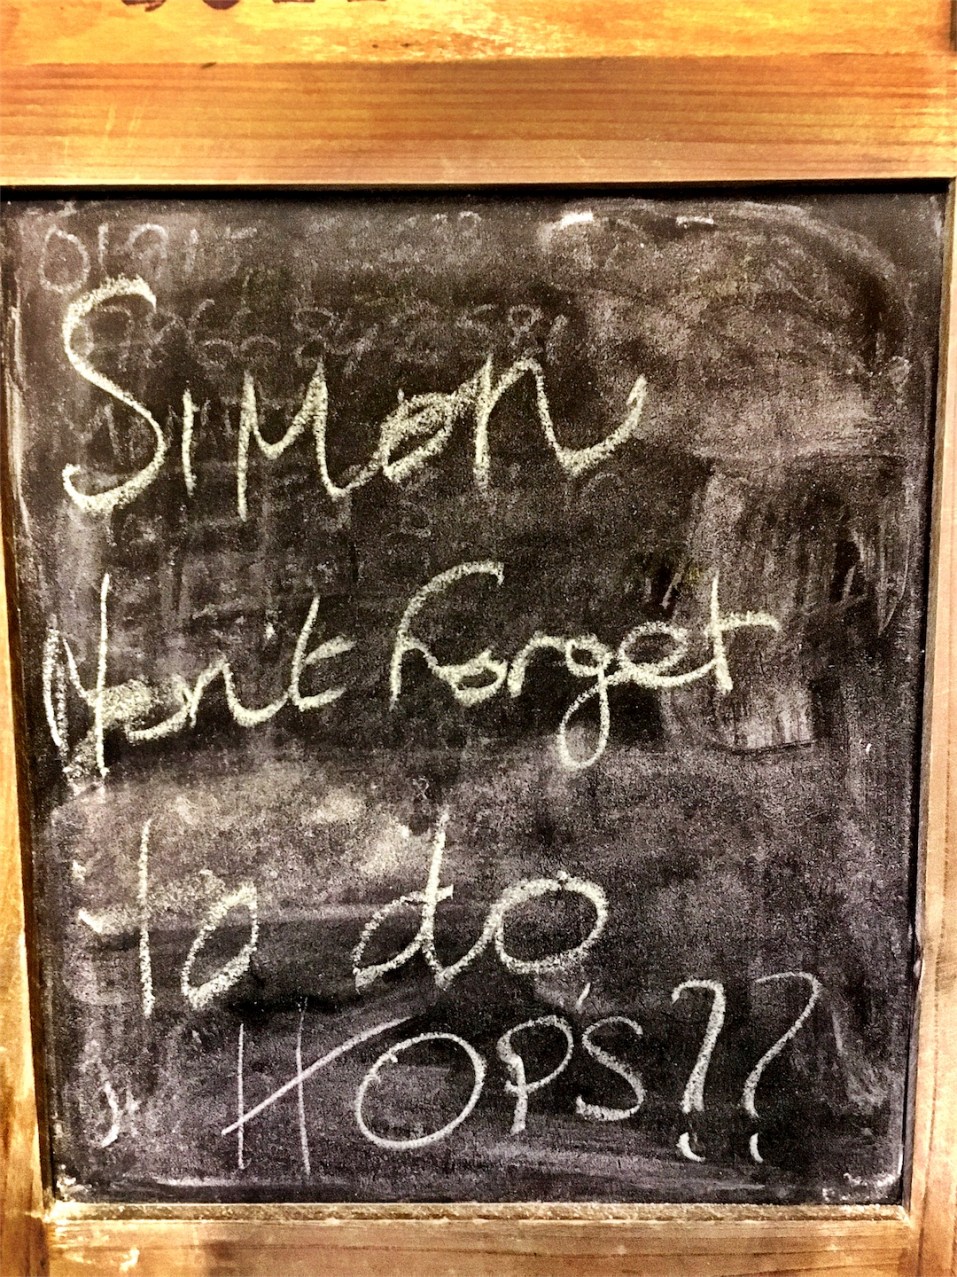 SiMon
Dont forget
To do
HOP'S??